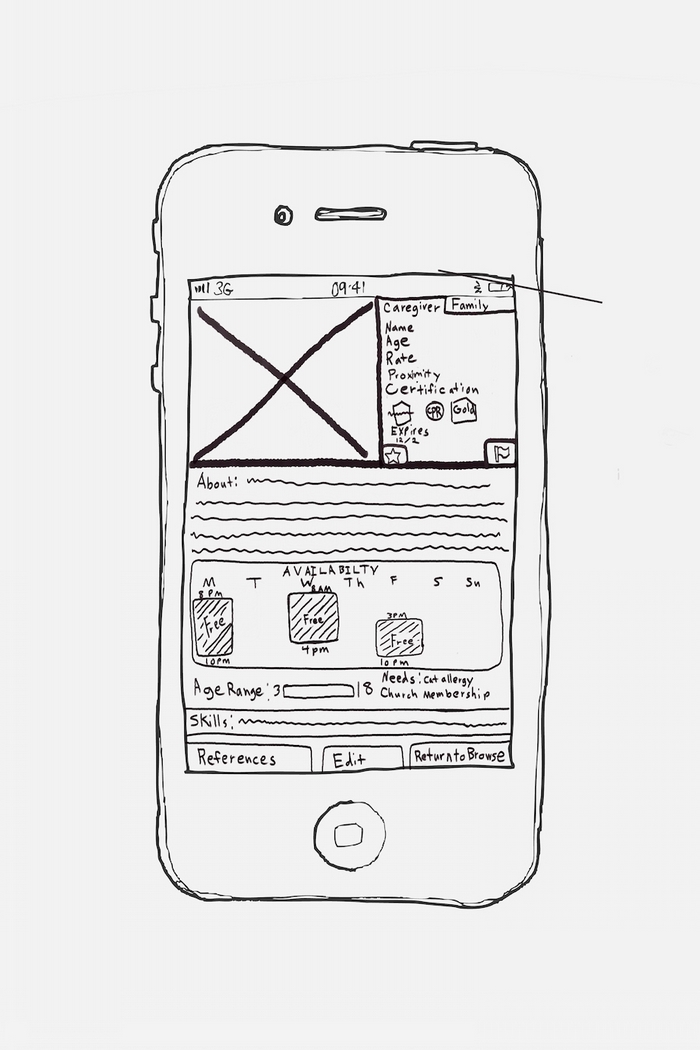 3G 09:41
Caregiver Family
Name
Age
Rate
Proximity
Certification
CPR Gold
Expires
12/2
About:
AVAILABILTY
M T W Th F S Su
8PM 8AM 3PM
Free Free Free
10pm 4pm 10pm
Age Range: 3 18
Needs: Cat allergy
Church Membership
Skills:
References Edit Return to Browse